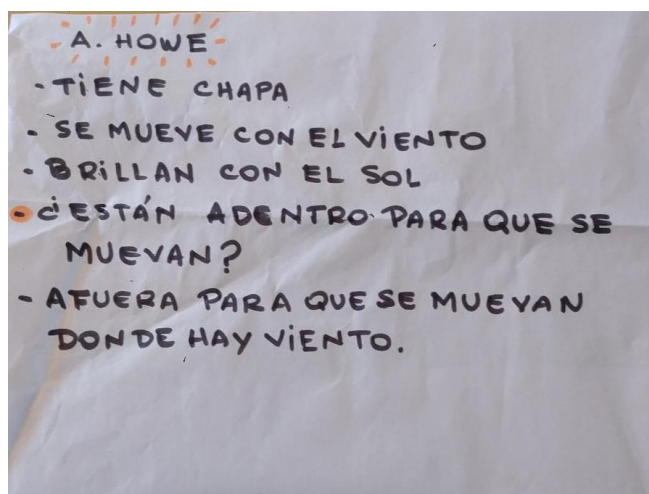 A. HOWE
- TiENE CHAPA
- SE MUEVE CON EL ViENTO
- BRiLLAN CON EL SOL
- ¿ESTÁN ADENTRO PARA QUE SE
MUEVAN?
- AFUERA PARA QUE SE MUEVAN
DONDE HAY ViENTO.